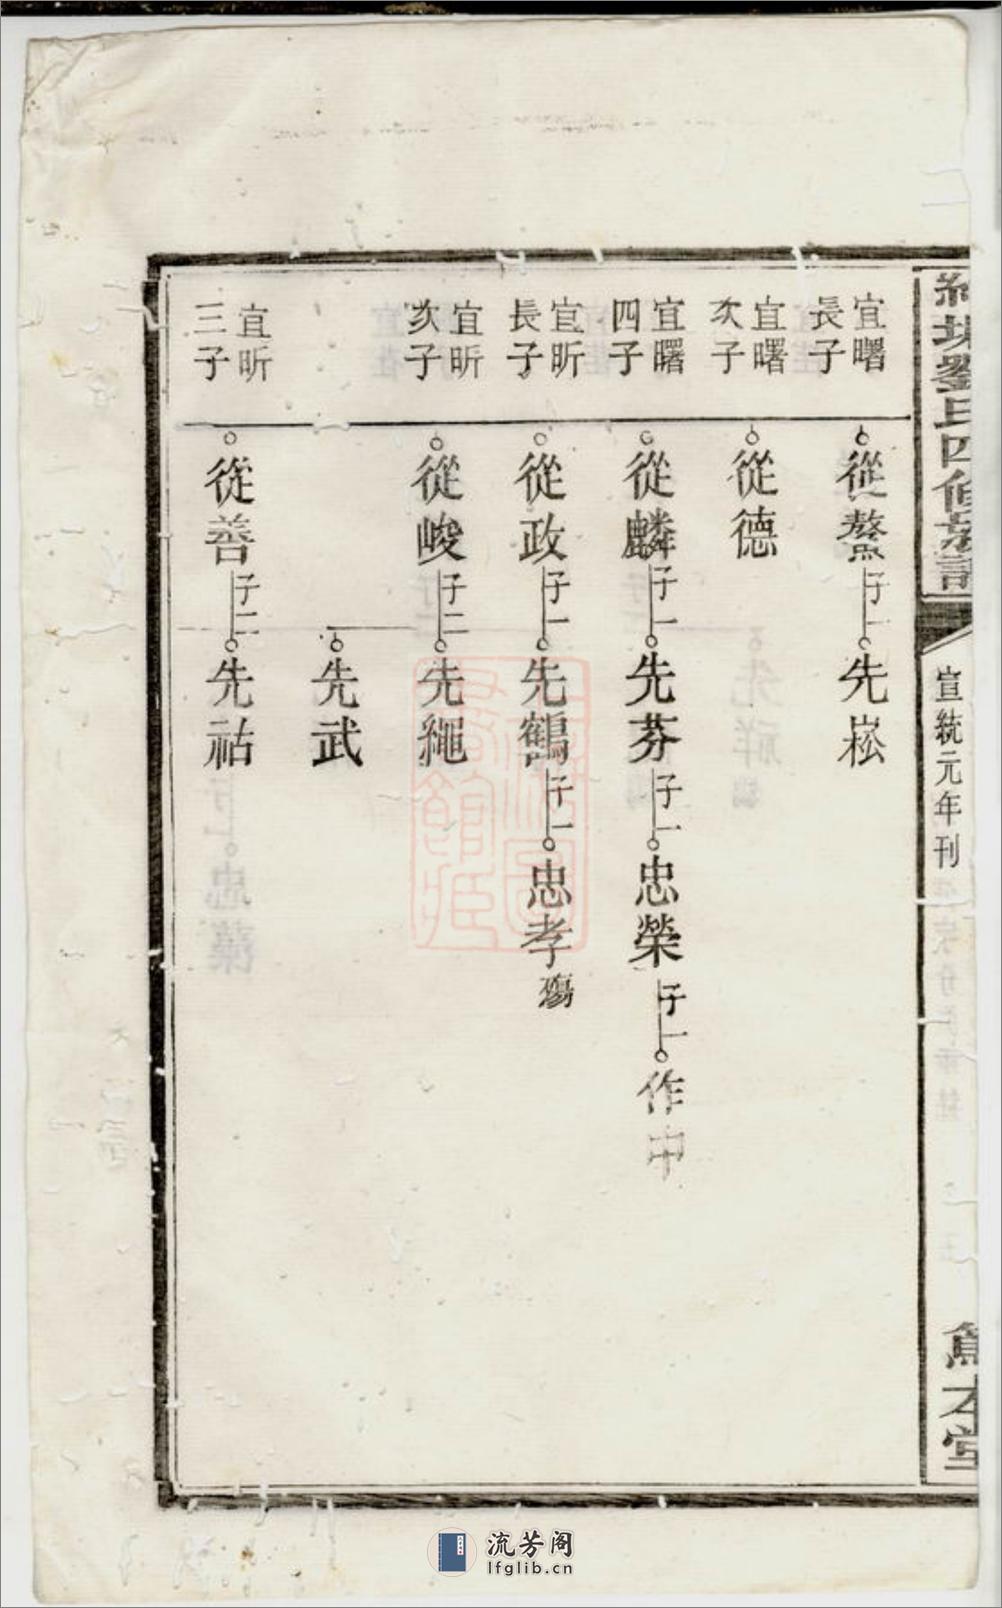 劉氏四修族譜
宣統元年刊
篤本堂
宜曙
長子
從鰲
子一
先崧
宜曙
次子
從德
宜曙
四子
從麟
子一
先芬
子一
忠榮
子一
作中
宜昕
長子
從政
子一
先鶴
子一
忠孝
殤
宜昕
次子
從峻
子二
先繩
先武
宜昕
三子
從善
子二
先祜
流芳阁
lfglib.cn